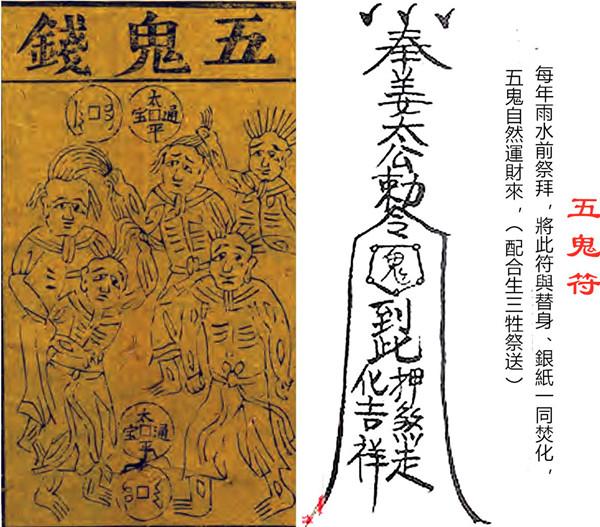 五鬼錢
太平通宝
太平通宝
奉姜太公勅令
鬼
到此
押煞走
化吉祥
五鬼符
每年雨水前祭拜,將此符與替身、銀紙一同焚化,
五鬼自然運財來,(配合生三牲祭送)